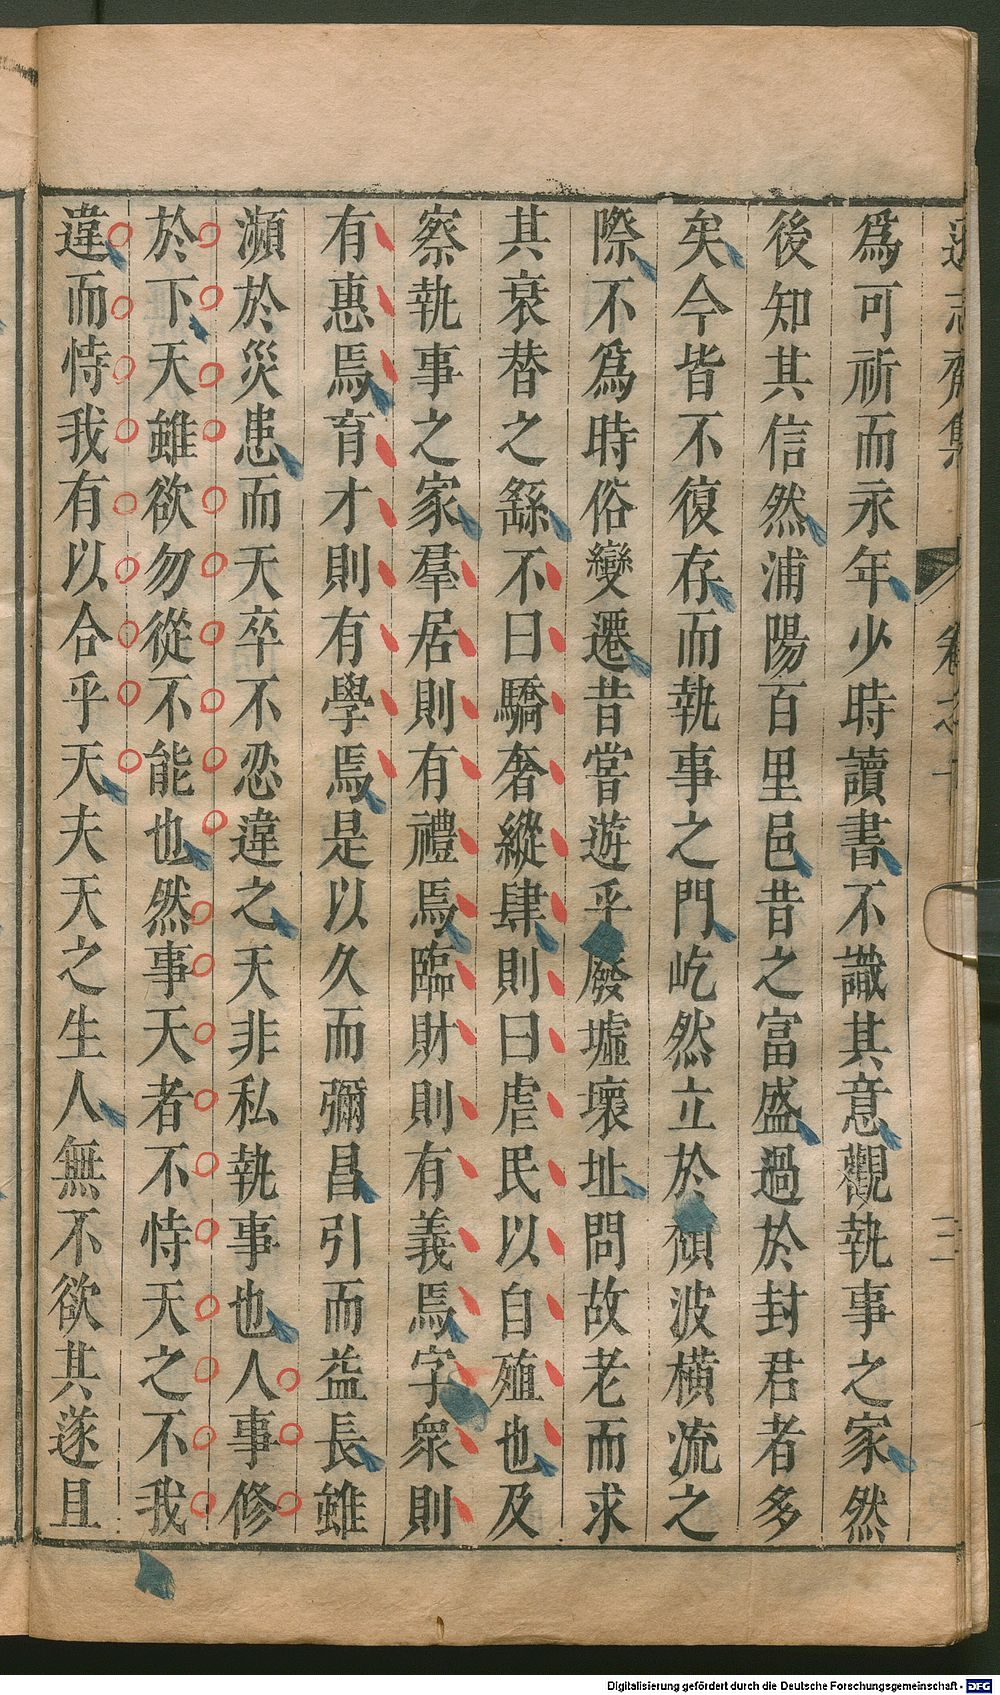 遜志齋集 卷之十 三
爲可祈而永年少時讀書不識其意觀執事之家然
後知其信然浦陽百里邑昔之富盛過於封君者多
矣今皆不復存而執事之門屹然立於頽波橫流之
際不爲時俗變遷昔嘗遊乎廢墟壞址問故老而求
其衰替之繇不曰驕奢縱肆則曰虐民以自殖也及
察執事之家羣居則有禮焉臨財則有義焉字衆則
有惠焉育才則有學焉是以久而彌昌引而益長雖
瀕於災患而天卒不忍違之天非私執事也人事修
於下天雖欲勿從不能也然事天者不恃天之不我
違而恃我有以合乎天夫天之生人無不欲其遂且
Digitalisierung gefördert durch die Deutsche Forschungsgemeinschaft - DFG